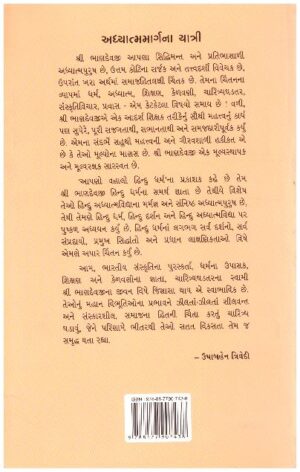 અધ્યાત્મમાર્ગના યાત્રી
શ્રી ભાણદેવજી આપણા સિદ્ધિમન્ત અને પ્રતિભાશાળી
અધ્યાત્મપુરુષ છે, ઉત્તમ કોટિના સર્જક અને તત્ત્વદર્શી વિવેચક છે,
ઉપરાંત ખરા અર્થમાં સમાજહિતલક્ષી ચિંતક છે. તેમના ચિંતનના
વ્યાપમાં ધર્મ, અધ્યાત્મ, શિક્ષણ, કેળવણી, ચારિત્ર્યઘડતર,
સંસ્કૃતિવિચાર, પ્રવાસ - એમ કેટકેટલા વિષયો સમાવ્યા છે ! વળી,
શ્રી ભાણદેવજીએ એક આદર્શ શિક્ષક તરીકેનું સૌથી મહત્ત્વનું કાર્ય
પણ સુપેરે, પૂરી સજ્જતાથી, સભાનતાથી અને સમજદારીપૂર્વક કર્યું
છે. એમના સંદર્ભે સહુથી મહત્ત્વની અને ગૌરવશાળી હકીકત એ
છે કે તેઓ મૂલ્યોના માણસ છે. શ્રી ભાણદેવજી એક મૂલ્યસ્થાપક
અને મૂલ્યરક્ષક સારસ્વત છે.
'આપણો વહાલો હિન્દુ ધર્મ'ના પ્રકાશક કહે છે તેમ
શ્રી ભાણદેવજી હિન્દુ ધર્મના સમર્થ જ્ઞાતા છે તેથીયે વિશેષ
તેઓ હિન્દુ અધ્યાત્મવિદ્યાના મર્મજ્ઞ અને સંનિષ્ઠ અધ્યાત્મપુરુષ છે,
તેથી તેમણે હિન્દુ ધર્મ, હિન્દુ દર્શન અને હિન્દુ અધ્યાત્મવિદ્યા પર
પુષ્કળ અધ્યયન કર્યું છે. હિન્દુ ધર્મના લગભગ સર્વ દર્શનો, સર્વ
સંપ્રદાયો, પ્રમુખ સિદ્ધાંતો અને પ્રધાન લાક્ષણિકતાઓ વિષે
એમણે અપાર ચિંતન કર્યું છે.
આમ, ભારતીય સંસ્કૃતિના પુરસ્કર્તા, ધર્મના ઉપાસક,
શિક્ષણ અને કેળવણીના જ્ઞાતા, ચારિત્ર્યઘડતરના સ્વામી
શ્રી ભાણદેવજીના જીવન વિષે જિજ્ઞાસા થાય એ સ્વાભાવિક છે.
તેઓનું મહાન વિભૂતિઓના પ્રભાવને ઝીલતાં-ઝીલતાં શીલવન્ત
અને સંસ્કારશીલ, સમાજના હિતની ચિંતા કરતું ચારિત્ર્ય
ઘડાયું, જેને પરિણામે ભીતરથી તેઓ સતત વિકસતા તેમ જ
સમૃદ્ધ થતા રહ્યા.
- ઉષાબહેન ત્રિવેદી